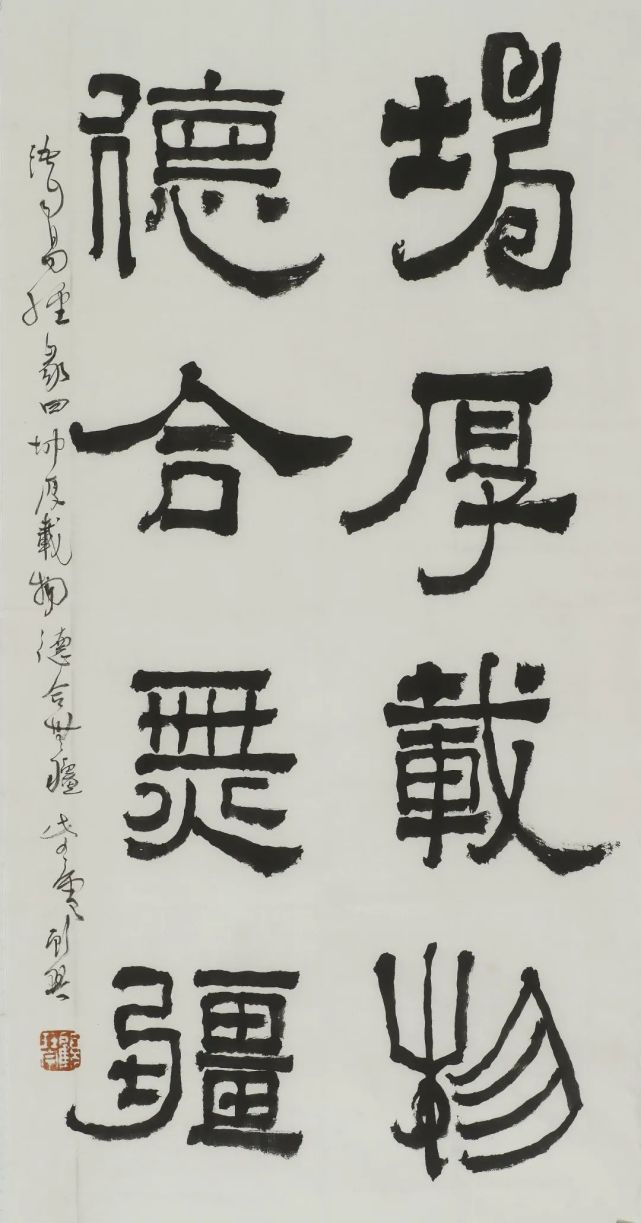 坤厚載物
德合無疆
易經彖曰坤厚載物德合無疆